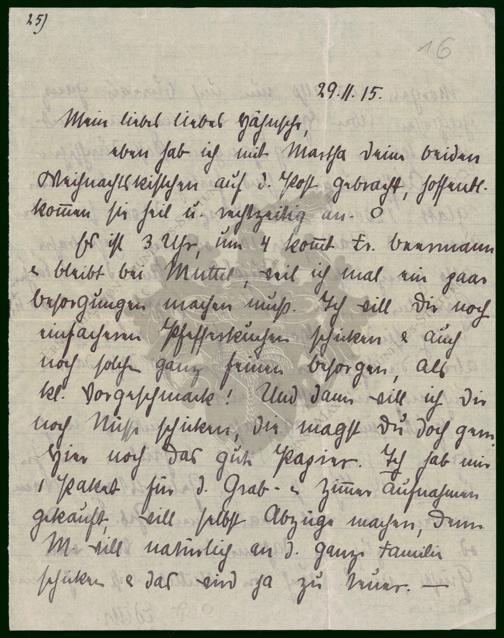 25)
16
29.11.15.
Mein liebes liebes Hähnchen,
eben hab ich mit Martha deine beiden
Weihnachtskistchen auf d. Post gebracht, hoffentl.
kommen sie heil u. rechtzeitig an.
Es ist 3 Uhr, um 4 kommt Fr. Beermann
& bleibt bei Muttel, weil ich mal ein paar
Besorgungen machen muß. Ich will Dir noch
einfacheren Pfefferkuchen schicken & auch
noch solchen ganz feinen besorgen, als
kl. Vorgeschmack! Und dann will ich Dir
noch Nüsse schicken, die magst Du doch gern.
Hier noch das gute Papier. Ich hab mir
1 Paket für d. Grab- & Zimmer Aufnahmen
gekauft, will selbst Abzüge machen, denn
M. will natürlich an d. ganze Familie
schicken & das wird ja zu teuer. —